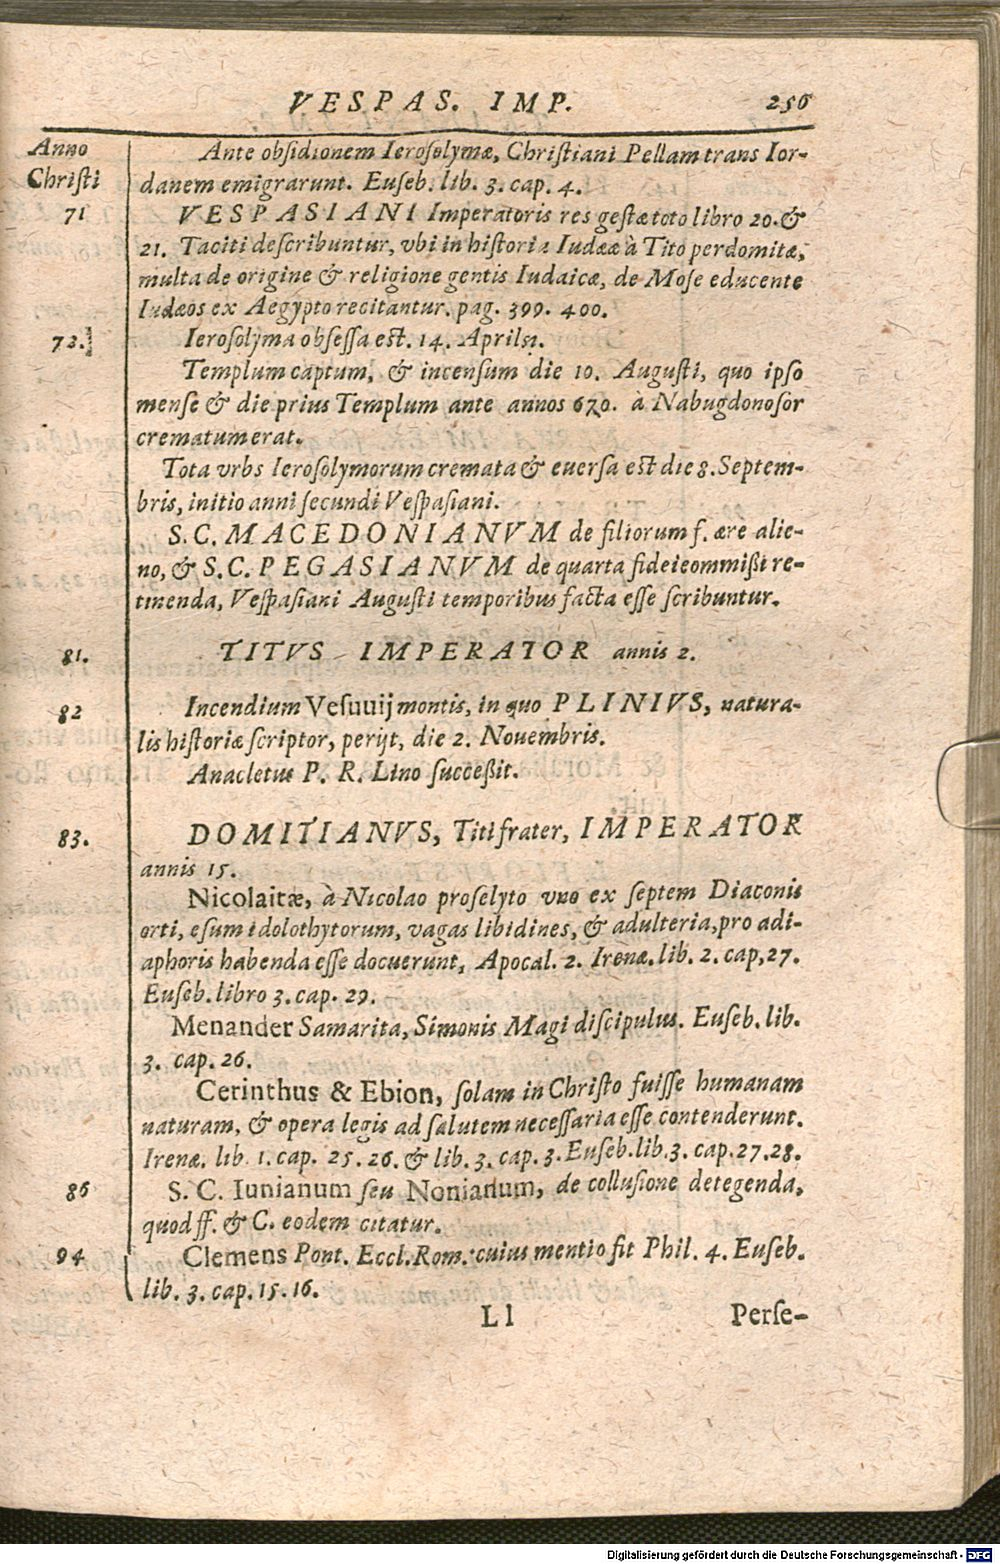 VESPAS. IMP. 256
Anno Ante obsidionem Ierosolymæ, Christiani Pellam trans Ior-
Christi danem emigrarunt. Euseb. lib. 3. cap. 4.
71 VESPASIANI Imperatoris res gestæ toto libro 20. &
21. Taciti describuntur, vbi in historia Iudææ à Tito perdomitæ,
multa de origine & religione gentis Iudaicæ, de Mose educente
Iudæos ex Aegypto recitantur. pag. 399. 400.
72. Ierosolyma obsessa est. 14. Aprilis.
Templum captum, & incensum die 10. Augusti, quo ipso
mense & die prius Templum ante annos 670. à Nabugdonosor
crematum erat.
Tota vrbs Ierosolymorum cremata & euersa est die 8. Septem-
bris, initio anni secundi Vespasiani.
S. C. MACEDONIANVM de filiorum f. ære alie-
no, & S. C. PEGASIANVM de quarta fideicommißi re-
tinenda, Vespasiani Augusti temporibus facta esse scribuntur.
81. TITVS IMPERATOR annis 2.
82 Incendium Vesuuij montis, in quo PLINIVS, natura-
lis historiæ scriptor, perijt, die 2. Novembris.
Anacletus P. R. Lino succeßit.
83. DOMITIANVS, Titi frater, IMPERATOR
annis 15.
Nicolaitæ, à Nicolao proselyto vno ex septem Diaconis
orti, esum idolothytorum, vagas libidines, & adulteria, pro adi-
aphoris habenda esse docuerunt, Apocal. 2. Irenæ. lib. 2. cap, 27.
Euseb. libro 3. cap. 29.
Menander Samarita, Simonis Magi discipulus. Euseb. lib.
3. cap. 26.
Cerinthus & Ebion, solam in Christo fuisse humanam
naturam, & opera legis ad salutem necessaria esse contenderunt.
Irenæ. lib. 1. cap. 25. 26. & lib. 3. cap. 3. Euseb. lib. 3. cap. 27. 28.
86 S. C. Iunianum seu Nonianum, de collusione detegenda,
quod ff. & C. eodem citatur.
94 Clemens Pont. Eccl. Rom. cuius mentio fit Phil. 4. Euseb.
lib. 3. cap. 15. 16.
Ll Perse-
Digitalisierung gefördert durch die Deutsche Forschungsgemeinschaft - DFG